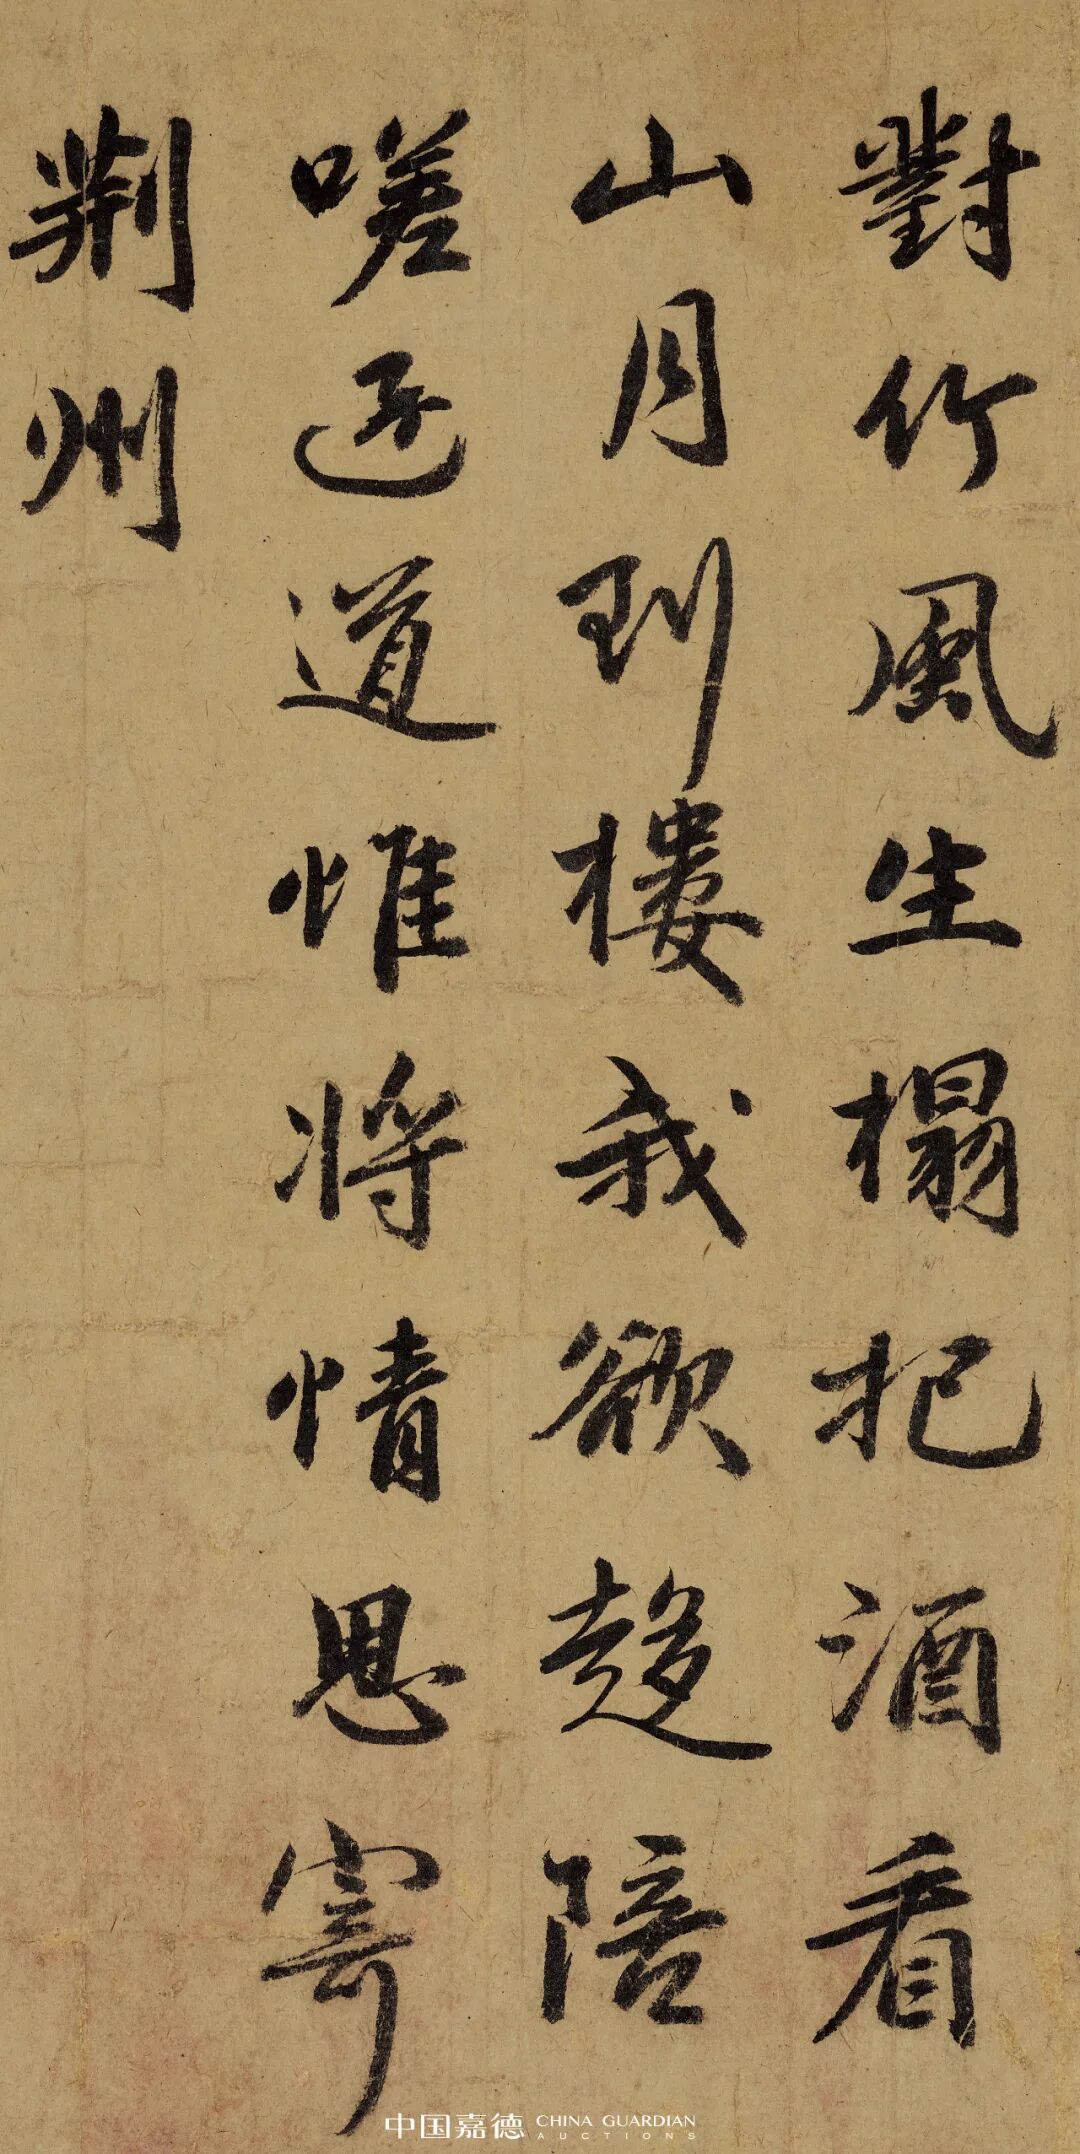 對竹風生榻把酒看
山月到樓我欲趍陪
嗟迂道惟將情思寄
荊州
中国嘉德 CHINA GUARDIAN
AUCTIONS